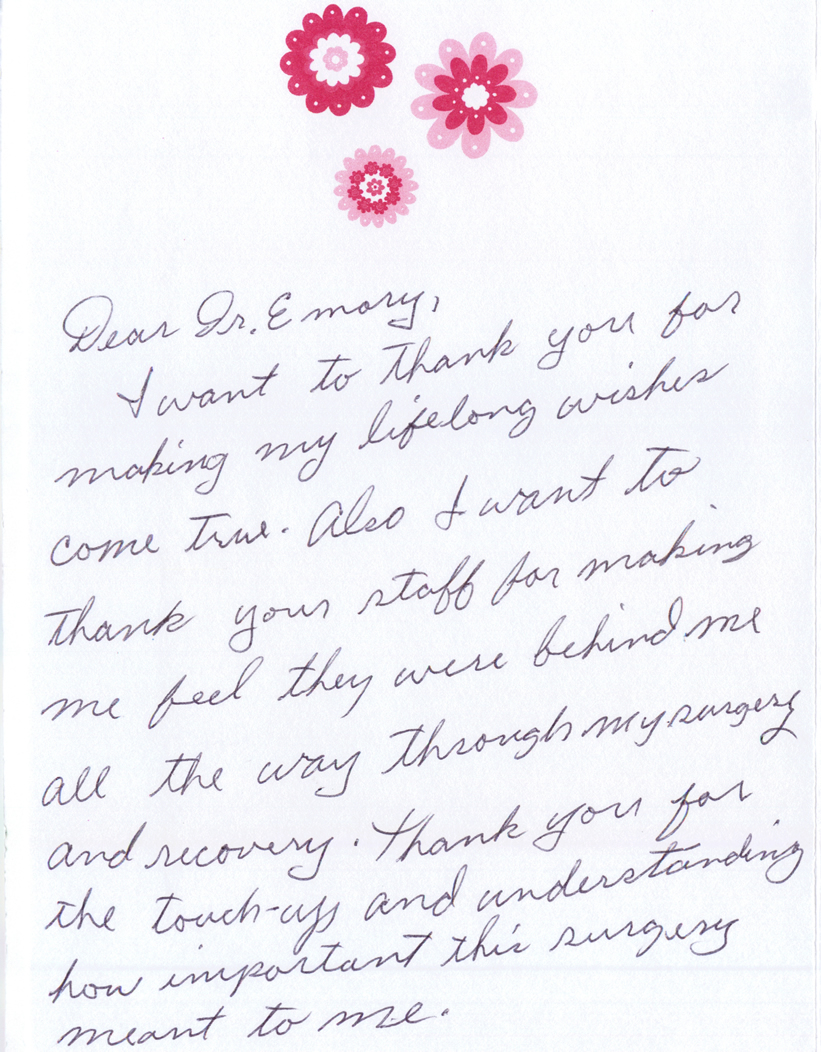 Dear Dr. Emory,
I want to thank you for
making my lifelong wishes
come true. Also I want to
thank your staff for making
me feel they were behind me
all the way through my surgery
and recovery. Thank you for
the touch-ups and understanding
how important this surgery
meant to me.